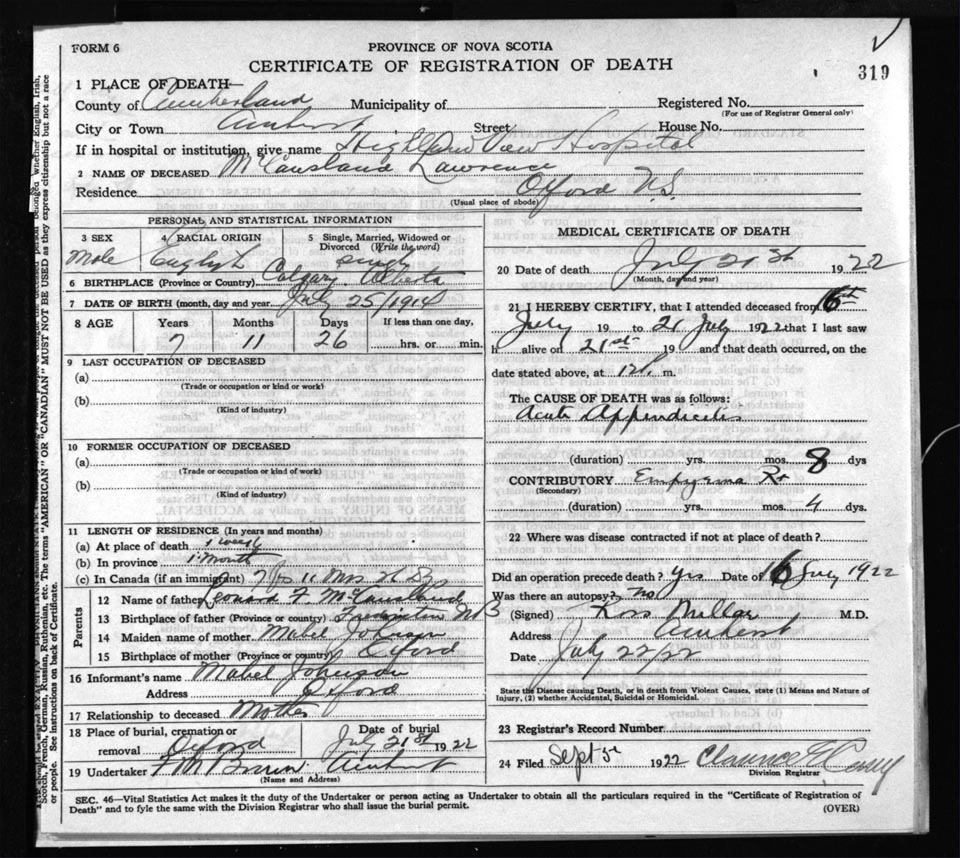 FORM 6
PROVINCE OF NOVA SCOTIA
CERTIFICATE OF REGISTRATION OF DEATH
319
1 PLACE OF DEATH—
County of Cumberland Municipality of Registered No.
(For use of Registrar General only)
City or Town Amherst Street House No.
If in hospital or institution, give name Highland View Hospital
2 NAME OF DECEASED McCausland Lawrence
Residence Oxford N.S.
(Usual place of abode)
PERSONAL AND STATISTICAL INFORMATION
3 SEX 4 RACIAL ORIGIN 5 Single, Married, Widowed or Divorced (Write the word)
Male English Single
6 BIRTHPLACE (Province or Country) Calgary Alberta
7 DATE OF BIRTH (month, day and year) July 25/1914
8 AGE Years Months Days If less than one day,
7 11 26 hrs. or min.
9 LAST OCCUPATION OF DECEASED
(a)
(Trade or occupation or kind or work)
(b)
(Kind of industry)
10 FORMER OCCUPATION OF DECEASED
(a)
(Trade or occupation or kind of work)
(b)
(Kind of industry)
11 LENGTH OF RESIDENCE (In years and months)
(a) At place of death 1 week
(b) In province 1 month
(c) In Canada (if an immigrant) 7 11 Mos
Parents
12 Name of father Leonard F. McCausland
13 Birthplace of father (Province or country) Fredericton NB
14 Maiden name of mother Mabel Johnson
15 Birthplace of mother (Province or country) Oxford
16 Informant's name Mabel Johnson
Address Oxford
17 Relationship to deceased Mother
18 Place of burial, cremation or removal Oxford
Date of burial July 21st 1922
19 Undertaker Brown Amherst
(Name and Address)
MEDICAL CERTIFICATE OF DEATH
20 Date of death July 21st 1922
(Month, day and year)
21 I HEREBY CERTIFY, that I attended deceased from 16th
July 19 to 21 July 1922 that I last saw
h alive on 21st 19 and that death occurred, on the
date stated above, at 12 m.
The CAUSE OF DEATH was as follows:
Acute Appendicitis
(duration) yrs. mos. 8 dys
CONTRIBUTORY Empyema Rt
(Secondary)
(duration) yrs. mos. 4 dys.
22 Where was disease contracted if not at place of death?
Did an operation precede death? yes Date of 16 July 1922
Was there an autopsy? no
(Signed) Ross Millar M.D.
Address Amherst
Date July 22/22
State the Disease causing Death, or in death from Violent Causes, state (1) Means and Nature of
Injury, (2) whether Accidental, Suicidal or Homicidal.
23 Registrar's Record Number
24 Filed Sept 1922 Clarence E Casey
Division Registrar
SEC. 46—Vital Statistics Act makes it the duty of the Undertaker or person acting as Undertaker to obtain all the particulars required in the "Certificate of Registration of
Death" and to fyle the same with the Division Registrar who shall issue the burial permit.
(OVER)